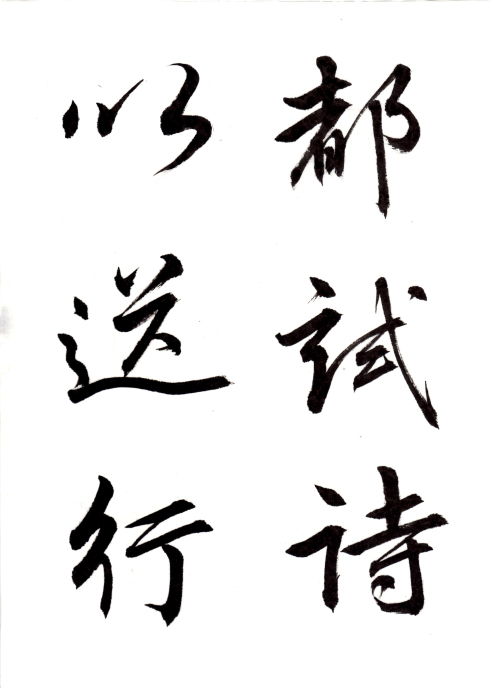 都試诗
以送行